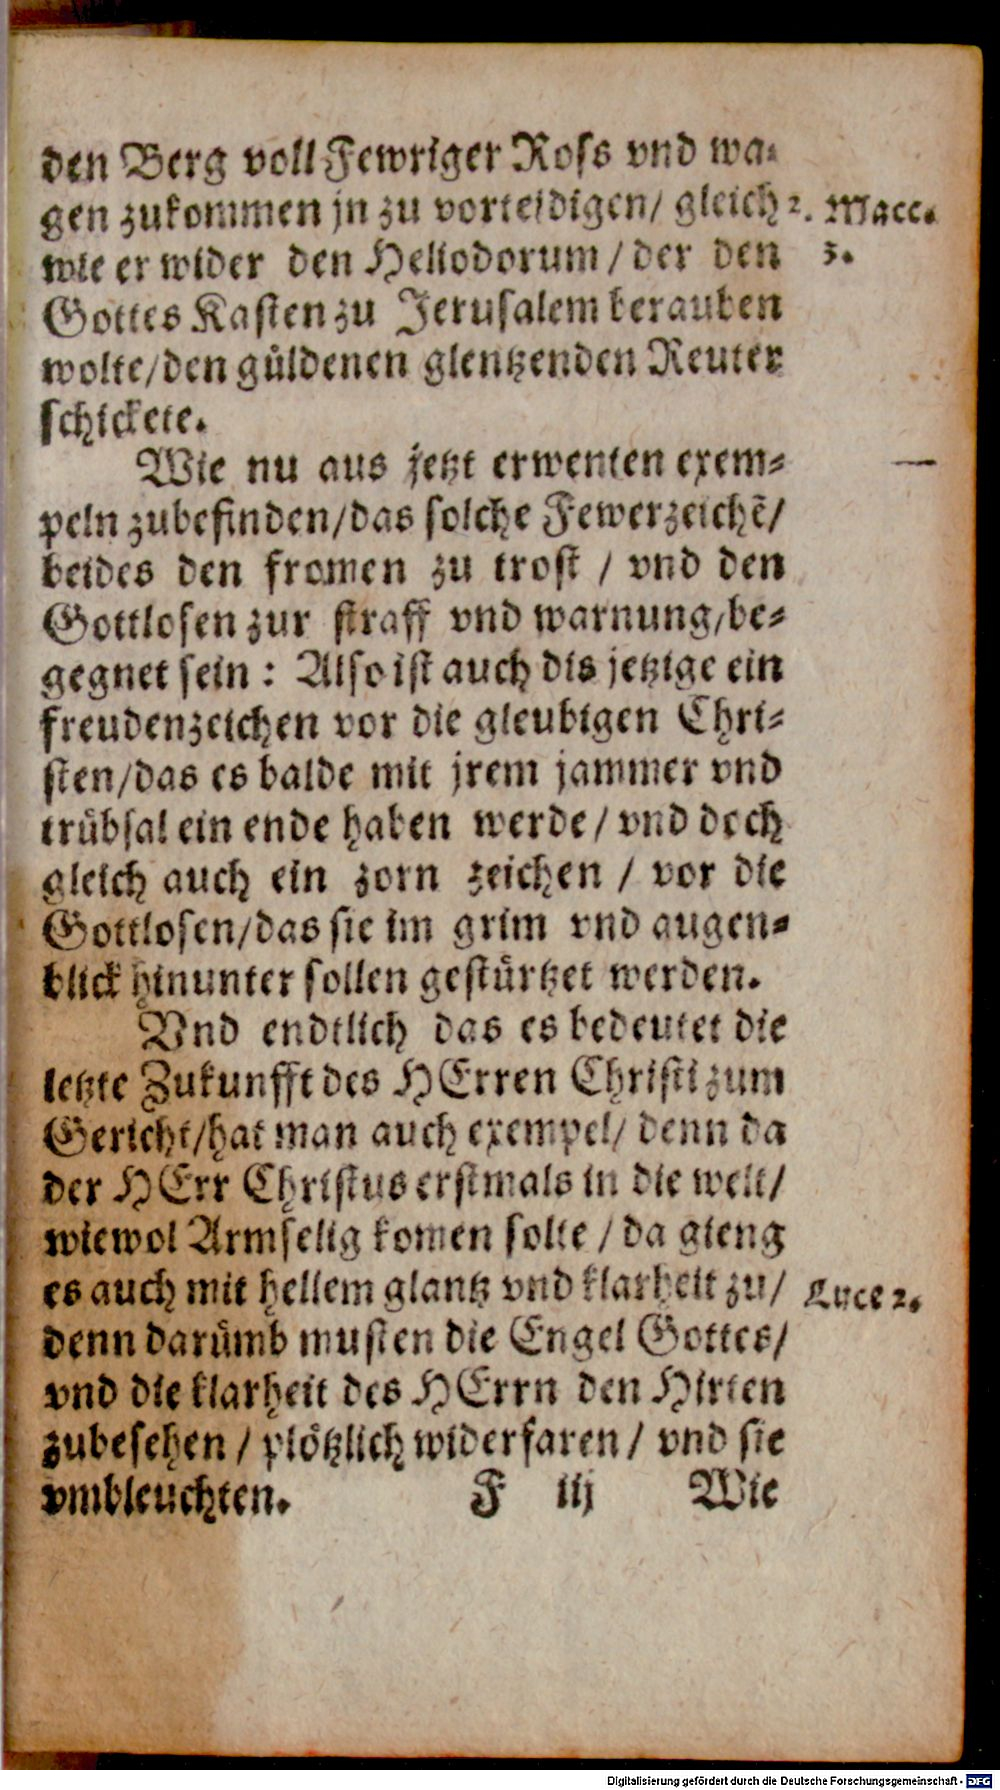 den Berg voll Fewriger Ross vnd wa⸗
gen zukommen jn zu vorteidigen/ gleich 2. Macc.
wie er wider den Heliodorum / der den 3.
Gottes Kasten zu Jerusalem berauben
wolte/den güldenen glentzenden Reuter
schickete.
Wie nu aus jetzt erwenten exem⸗
peln zubefinden/das solche Fewerzeichẽ/
beides den fromen zu trost / vnd den
Gottlosen zur straff vnd warnung/be⸗
gegnet sein : Also ist auch dis jetzige ein
freudenzeichen vor die gleubigen Chri⸗
sten/das es balde mit jrem jammer vnd
trübsal ein ende haben werde / vnd doch
gleich auch ein zorn zeichen / vor die
Gottlosen/das sie im grim vnd augen⸗
blick hinunter sollen gestürtzet werden.
Vnd endtlich das es bedeutet die
letzte Zukunfft des HErren Christi zum
Gericht/hat man auch exempel/ denn da
der HErr Christus erstmals in die welt/
wiewol Armselig komen solte / da gieng
es auch mit hellem glantz vnd klarheit zu/ Luce 2.
denn darümb musten die Engel Gottes/
vnd die klarheit des HErrn den Hirten
zubesehen / plötzlich widerfaren / vnd sie
vmbleuchten. F iij Wie
Digitalisierung gefördert durch die Deutsche Forschungsgemeinschaft - DFG